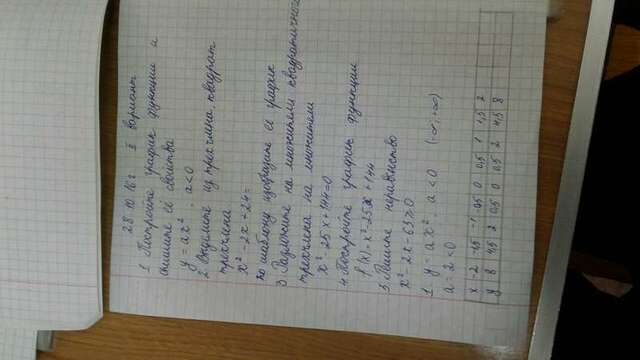 28.10.16г II вариант
1 Постройте график функции и
опишите её свойства
y = ax², a<0
2 Выделите из трехчлена квадрат
трехчлена
x² - 2x + 24 =
по шаблону изобразите её график
3 Разложите на множители квадратичного
трехчлена на множители
x² - 25x + 144 = 0
4 Постройте график функции
f(x) = x² - 25x + 144
5 Решите неравенство
x² - 2x - 63 ≥ 0
1 y = ax², a < 0 (-∞; +∞)
a = 2 < 0
x -2 -1,5 -1 -0,5 0 0,5 1 1,5 2
y 8 4,5 2 0,5 0 0,5 2 4,5 8